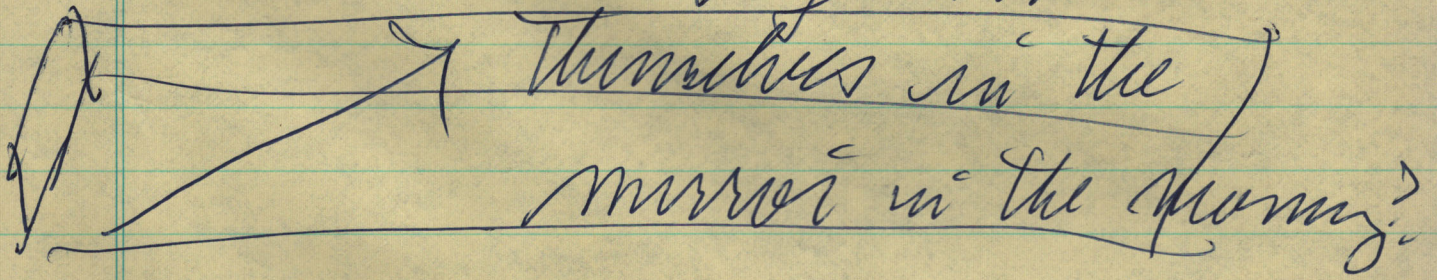 themselves in the
mirror in the morning?